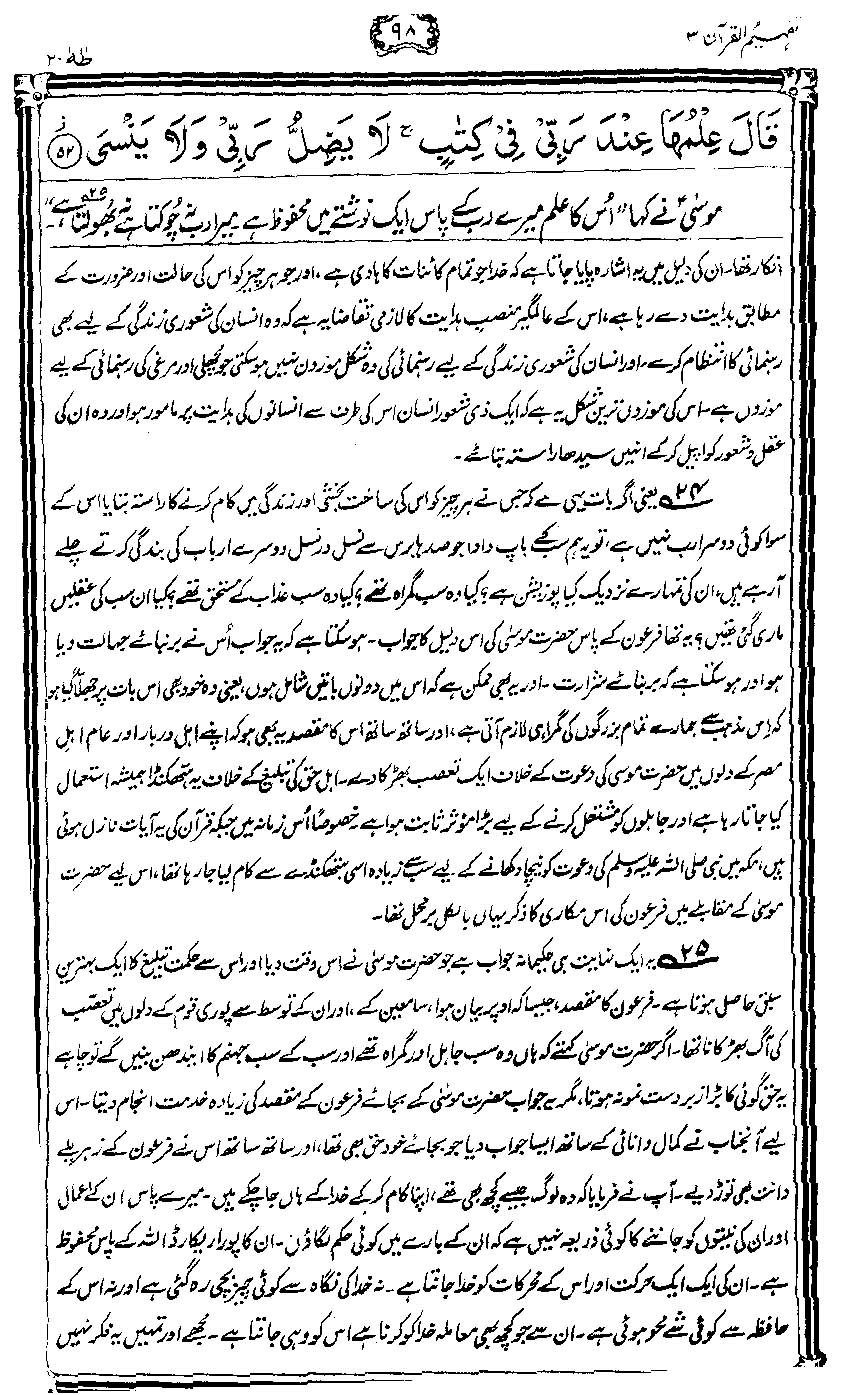 تفہیم القرآن ۳
۹۸
طٰهٰ ۲۰
قَالَ عِلْمُهَا عِنْدَ رَبِّيْ فِيْ كِتٰبٍ ۚ لَا يَضِلُّ رَبِّيْ وَلَا يَنْسَى ۵۲
موسیٰؑ نے کہا ”اُس کا علم میرے رب کے پاس ایک نوشتے میں محفوظ ہے۔ میرا رب نہ چُوکتا ہے نہ بھُولتا ہے۲۵۔“
انکار تھا۔ ان کی دلیل میں یہ اشارہ پایا جاتا ہے کہ خدا جو تمام کائنات کا ہادی ہے، اور جو ہر چیز کو اس کی حالت اور ضرورت کے
مطابق ہدایت دے رہا ہے، اس کے عالمگیر منصبِ ہدایت کا لازمی تقاضا یہ ہے کہ وہ انسان کی شعوری زندگی کے لیے بھی
رہنمائی کا انتظام کرے۔ اور انسان کی شعوری زندگی کے لیے رہنمائی کی وہ شکل موزوں نہیں ہو سکتی جو مچھلی اور مرغی کی رہنمائی کے لیے
موزوں ہے۔ اس کی موزوں ترین شکل یہ ہے کہ ایک ذی شعور انسان اس کی طرف سے انسانوں کی ہدایت پر مامور ہو اور وہ ان کی
عقل و شعور کو اپیل کر کے انہیں سیدھا راستہ بتائے۔
۲۴ یعنی اگر بات یہی ہے کہ جس نے ہر چیز کو اس کی ساخت بخشی اور زندگی میں کام کرنے کا راستہ بتایا اس کے
سوا کوئی دوسرا رب نہیں ہے، تو یہ ہم سب کے باپ دادا جو صدہا برس سے نسل در نسل دوسرے ارباب کی بندگی کرتے چلے
آ رہے ہیں، ان کی تمہارے نزدیک کیا پوزیشن ہے؟ کیا وہ سب گمراہ تھے؟ کیا وہ سب عذاب کے مستحق تھے؟ کیا ان سب کی عقلیں
ماری گئی تھیں؟ یہ تھا فرعون کے پاس حضرت موسیٰ کی اس دلیل کا جواب۔ ہو سکتا ہے کہ یہ جواب اُس نے بربنائے جہالت دیا
ہو اور ہو سکتا ہے کہ بربنائے شرارت۔ اور یہ بھی ممکن ہے کہ اس میں دونوں باتیں شامل ہوں، یعنی وہ خود بھی اس بات پر جھلّا گیا ہو
کہ اِس مذہب سے ہمارے تمام بزرگوں کی گمراہی لازم آتی ہے، اور ساتھ ساتھ اس کا مقصد یہ بھی ہو کہ اپنے اہلِ دربار اور عام اہلِ
مصر کے دلوں میں حضرت موسیٰ کی دعوت کے خلاف ایک تعصب بھڑکا دے۔ اہلِ حق کی تبلیغ کے خلاف یہ ہتھکنڈا ہمیشہ استعمال
کیا جاتا رہا ہے اور جاہلوں کو مشتعل کرنے کے لیے بڑا مؤثر ثابت ہوا ہے۔ خصوصاً اُس زمانہ میں جبکہ قرآن کی یہ آیات نازل ہوئی
ہیں، مکہ میں نبی صلی اللہ علیہ وسلم کی دعوت کو نیچا دکھانے کے لیے سب سے زیادہ اسی ہتھکنڈے سے کام لیا جا رہا تھا، اس لیے حضرت
موسیٰ کے مقابلے میں فرعون کی اس مکاری کا ذکر یہاں بالکل برمحل تھا۔
۲۵ یہ ایک نہایت ہی حکیمانہ جواب ہے جو حضرت موسیٰ نے اس وقت دیا اور اس سے حکمتِ تبلیغ کا ایک بہترین
سبق حاصل ہوتا ہے۔ فرعون کا مقصد، جیسا کہ اوپر بیان ہوا، سامعین کے، اور ان کے توسط سے پوری قوم کے دلوں میں تعصب
کی آگ بھڑکانا تھا۔ اگر حضرت موسیٰ کہتے کہ ہاں وہ سب جاہل اور گمراہ تھے اور سب کے سب جہنم کا ایندھن بنیں گے تو چاہے
یہ حق گوئی کا بڑا زبردست نمونہ ہوتا، مگر یہ جواب حضرت موسیٰ کے بجائے فرعون کے مقصد کی زیادہ خدمت انجام دیتا۔ اس
لیے آنجناب نے کمال دانائی کے ساتھ ایسا جواب دیا جو بجائے خود حق بھی تھا، اور ساتھ ساتھ اس نے فرعون کے زہریلے
دانت بھی توڑ دیے۔ آپ نے فرمایا کہ وہ لوگ جیسے کچھ بھی تھے، اپنا کام کر کے خدا کے ہاں جا چکے ہیں۔ میرے پاس ان کے اعمال
اور ان کی نیتوں کو جاننے کا کوئی ذریعہ نہیں ہے کہ ان کے بارے میں کوئی حکم لگاؤں۔ ان کا پورا ریکارڈ اللہ کے پاس محفوظ
ہے۔ ان کی ایک ایک حرکت اور اس کے محرکات کو خدا جانتا ہے۔ نہ خدا کی نگاہ سے کوئی چیز بچی رہ گئی ہے اور نہ اس کے
حافظہ سے کوئی شے محو ہوئی ہے۔ ان سے جو کچھ بھی معاملہ خدا کو کرنا ہے اس کو وہی جانتا ہے۔ مجھے اور تمہیں یہ فکر نہیں